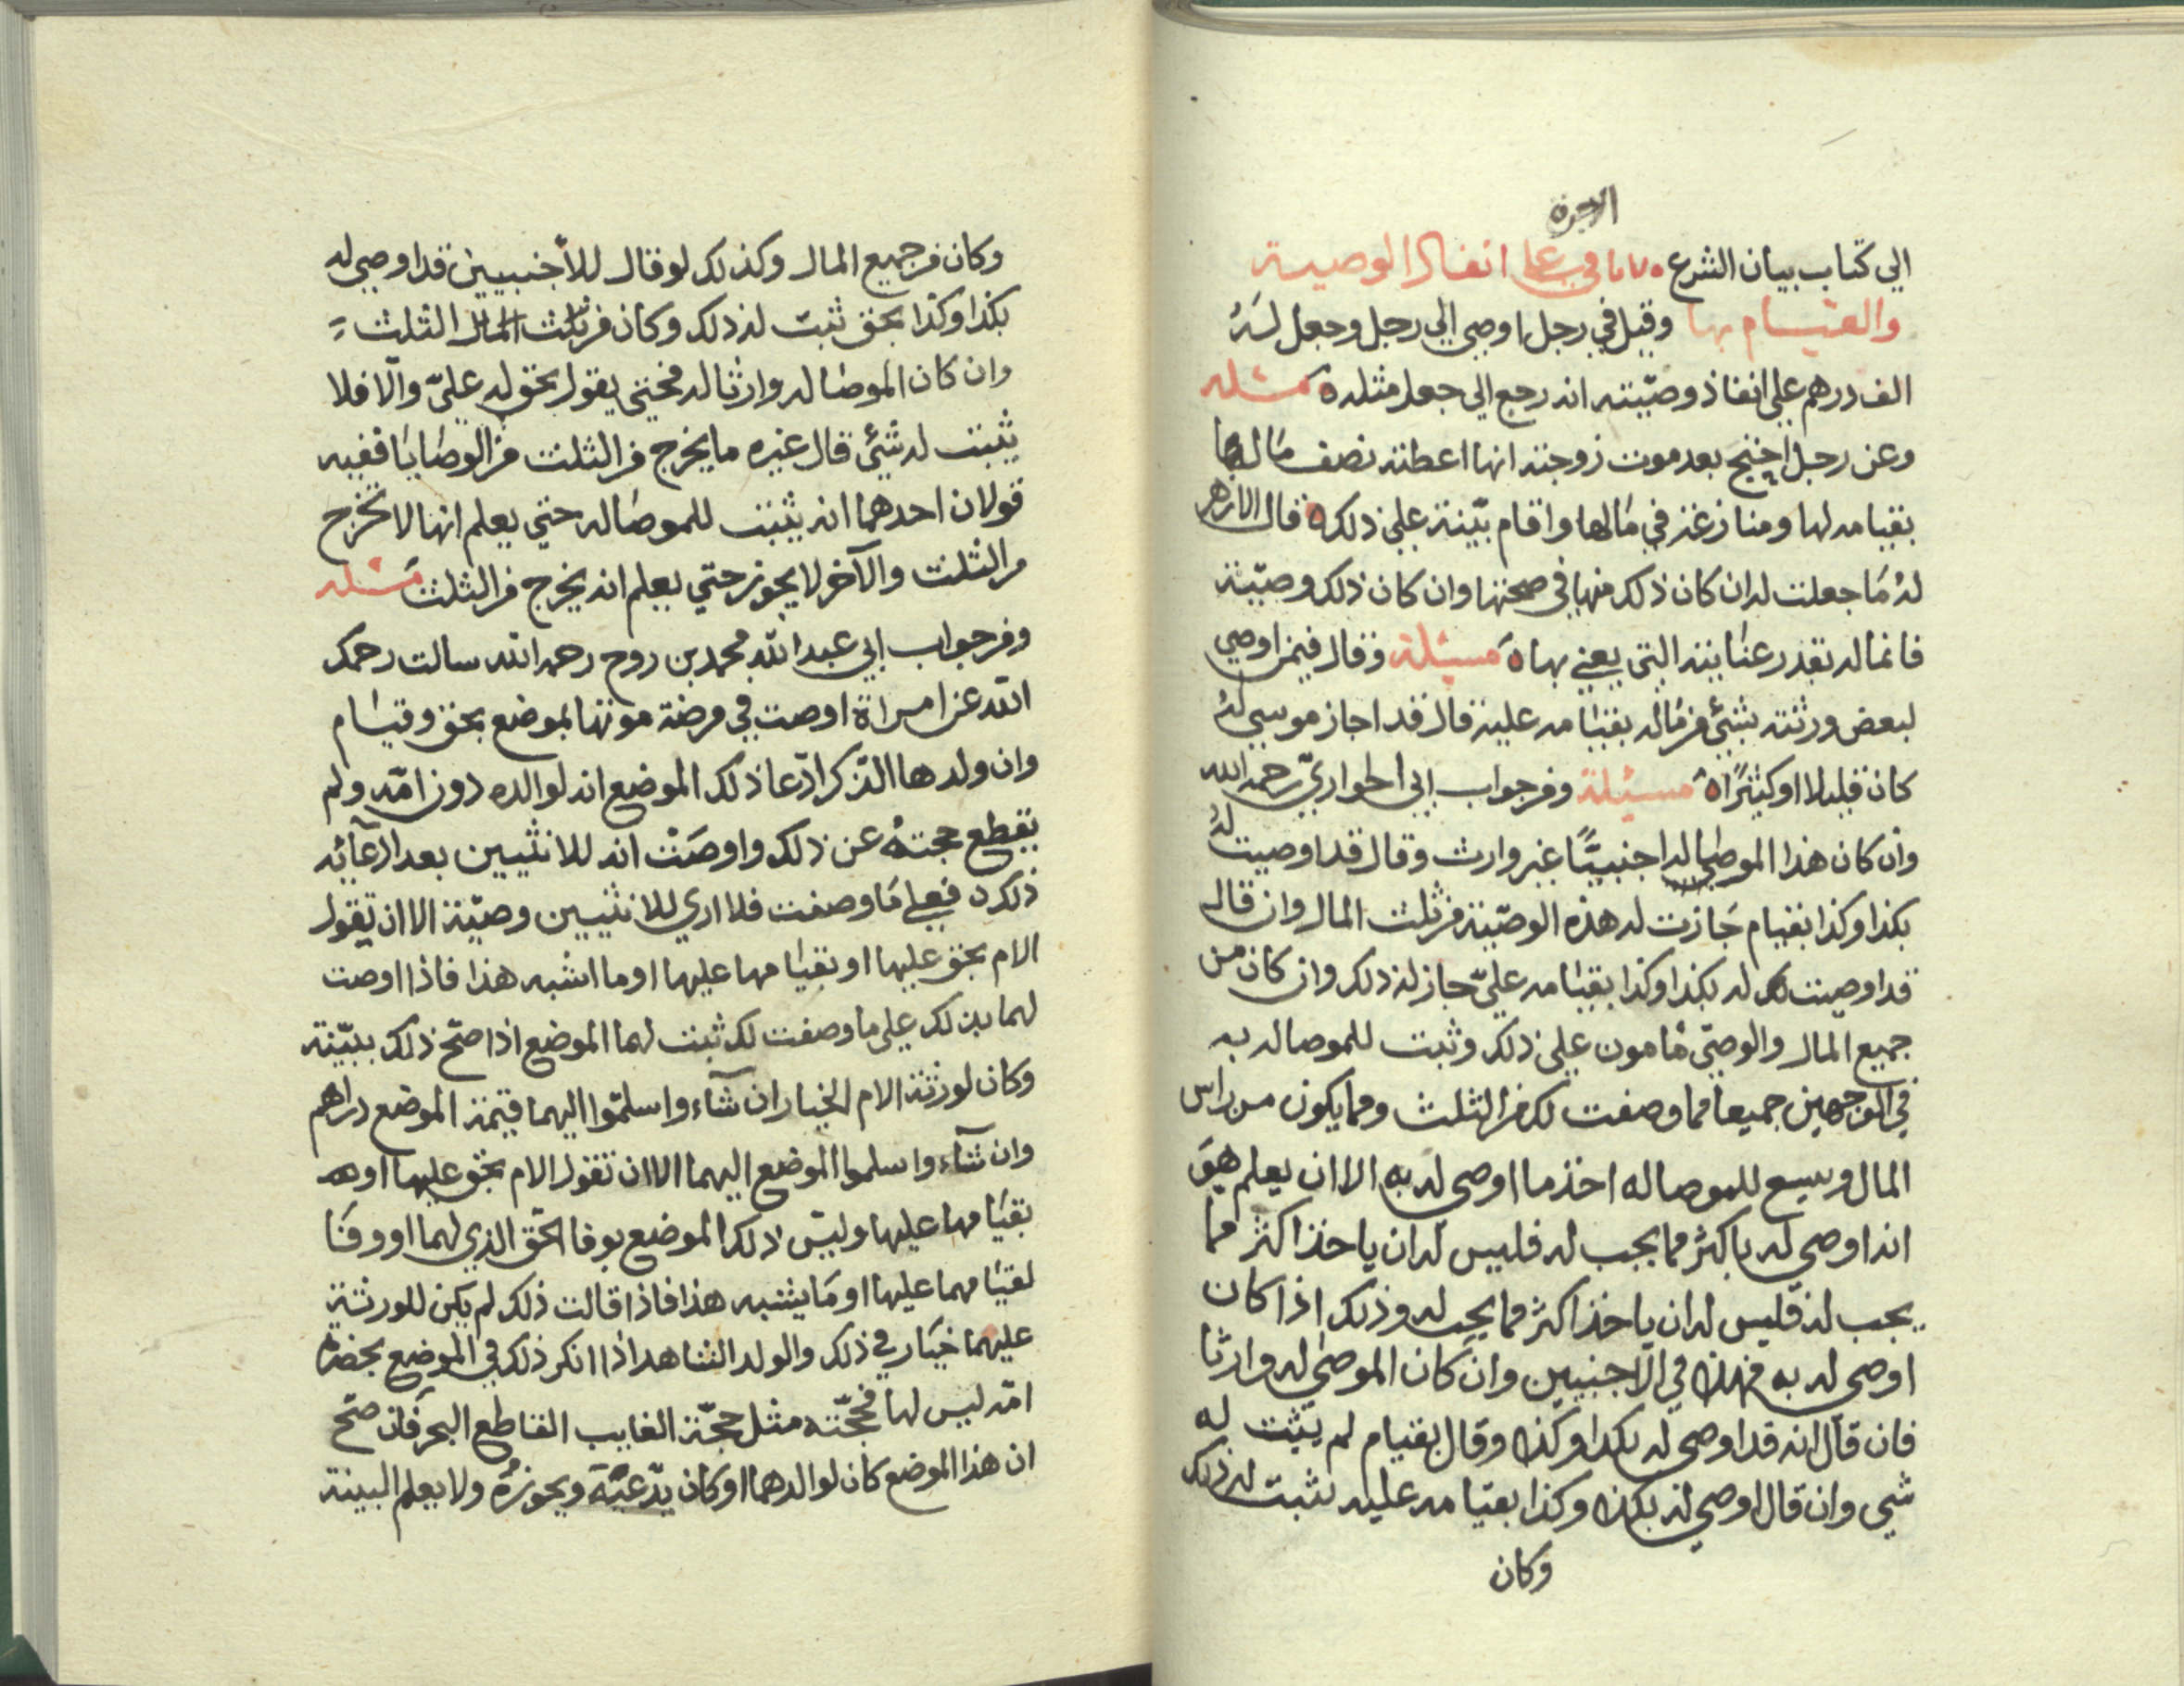 الاجرة
الي كتاب بيان الشرع ٥ باب في علي انفاذ الوصية
والقيام بها وقيل في رجل اوصي الي رجل وجعل له
الف درهم علي انفاذ وصيته انه رجع الي جعل مثله ٥ مسئلة
وعن رجل احتج بعد موت زوجته انها اعطته نصف مالها
بقيامه لها ومنازعته في مالها واقام بينة علي ذلك ٥ قال الازهر
له ما جعلت له ان كان ذلك منها في صحتها وان كان ذلك وصية
فانما له بقدر عنايته التي يعني بها ٥ مسئلة وقال فيمن اوصي
لبعض ورثته بشئ من ماله بقيامه عليه قال قد اجاز موسي له
كان قليلا او كثيرًا ٥ مسئلة ومن جواب ابي الحواري رحمه الله
وان كان هذا الموصي له اجنبيًّا غير وارث وقال قد اوصيت له
بكذا وكذا بقيام جازت له هذه الوصية من ثلث المال وان قال
قد اوصيت له بكذا وكذا بقيامه عليّ جاز له ذلك وان كان من
جميع المال والوصيّ مامون علي ذلك وثبت للموصا له به
في الوجهين جميعا مما وصفت لك من الثلث ومما يكون من راس
المال ويسع للموصا له اخذ ما اوصي له به الا ان يعلم هو
انه اوصي له باكثر مما يجب له فليس له ان ياخذ اكثر مما
يجب له فليس له ان ياخذ اكثر مما يجب له وذلك اذا كان
اوصي له به فهذا في الاجنبيين وان كان الموصي له وارثا
فان قال انه قد اوصي له بكذا وكذا وقال بقيام لم يثبت له
شي وان قال اوصي له بكذا وكذا بقيامه عليه ثبت له ذلك
وكان
وكان من جميع المال وكذلك لو قال للأجنبيين قد اوصي له
بكذا وكذا بحق ثبت له ذلك وكان من ثلث المال الثلث
وان كان الموصا له وارثا له فحتي يقول بحق له عليّ والّا فلا
يثبت له شئ قال غيره ما يخرج من الثلث من الوصايا ففيه
قولان احدهما انه يثبت للموصا له حتي يعلم انها لا تخرج
من الثلث والآخر لا يجوز حتي يعلم انه يخرج من الثلث مسئلة
ومن جواب ابي عبد الله محمد بن روح رحمه الله سالت رحمك
الله عن امراة اوصت في مرضة موتها بموضع بحق وقيام
وان ولدها الذكر ادّعا ذلك الموضع انه لوالده دون امّه ولم
يقطع حجتهُ عن ذلك واوصَتْ انه للانثيين بعد ادعآئه
ذلك ٥ فعلي ما وصفت فلا اري للانثيين وصيّة الا ان تقول
الام بحق عليها او بقيامها عليها او ما اشبه هذا فاذا اوصت
لهما بذلك علي ما وصفت لك ثبت لهما الموضع اذا صحّ ذلك ببيّنة
وكان لورثة الام الخيار ان شآءوا سلمّوا اليهما قيمة الموضع دراهم
وان شآءوا سلموا الموضع اليهما الا ان تقول الام بحق عليها او
بقيامها عليها وليس ذلك الموضع بوفا الحّق الذي لهما او وفَا
لقيامهما عليها او ما يشبه هذا فاذا قالت ذلك لم يكن للورثة
عليهما خيار في ذلك والولد الشاهد اذا انكر ذلك في الموضع بحضرة
امّه ليس لها فحجّته مثل حجّة الغايب القاطع البحر فان صحّ
ان هذا الموضع كان لوالدهما او كان يدّعيْه ويحوزهُ ولا يعلم البينة